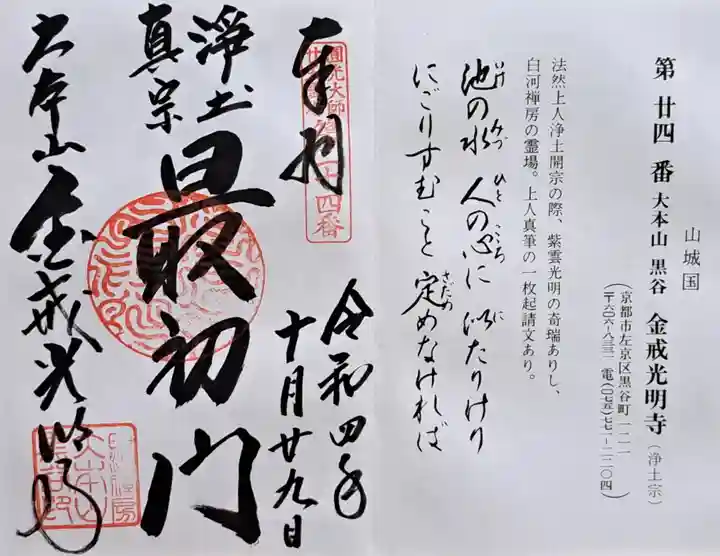 山城国
第廿四番 大本山 黒谷 金戒光明寺(浄土宗)
京都市左京区黒谷町一二一
(〒六〇六-八三三一 電(〇七五)七七一-二二〇四)
法然上人浄土開宗の際、紫雲光明の奇瑞ありし、
白河禅房の霊場。上人真筆の一枚起請文あり。
池の水 人の心に 似たりけり
いけ みづ ひと こころ に
にごりすむこと 定めなければ
さだめ
奉拝
圓光大師
十四番
令和四年
十月廿九日
浄土
真宗
最初門
大本山 金戒光明寺